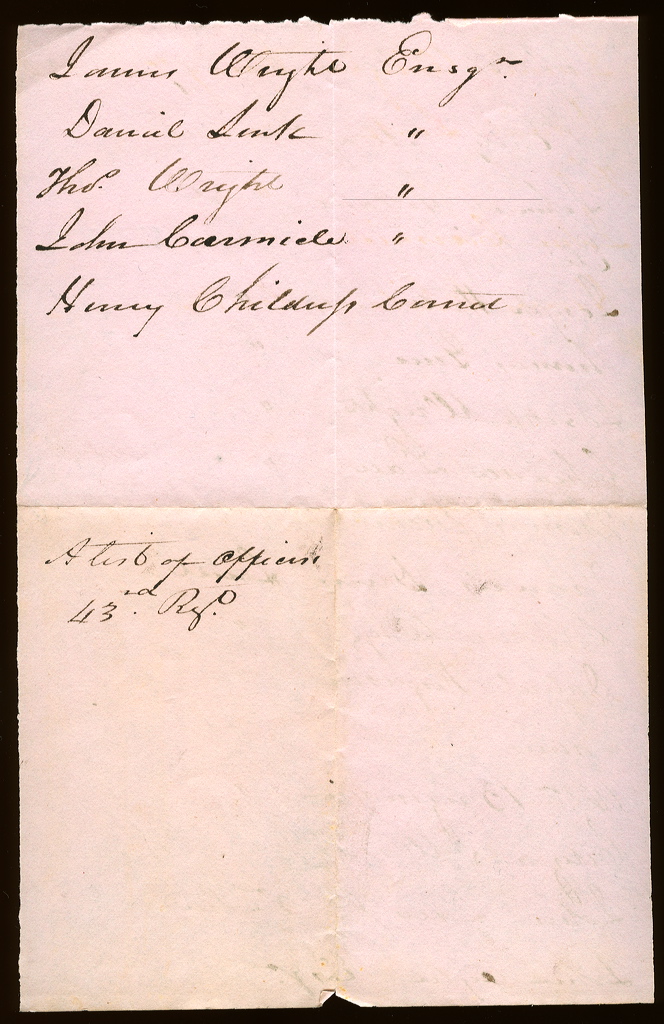 James Wright Ensgn
Daniel Link "
Thos. Wright "
John Carmicle "
Henry Childress Cornet
A list of officers
43rd. Regt.